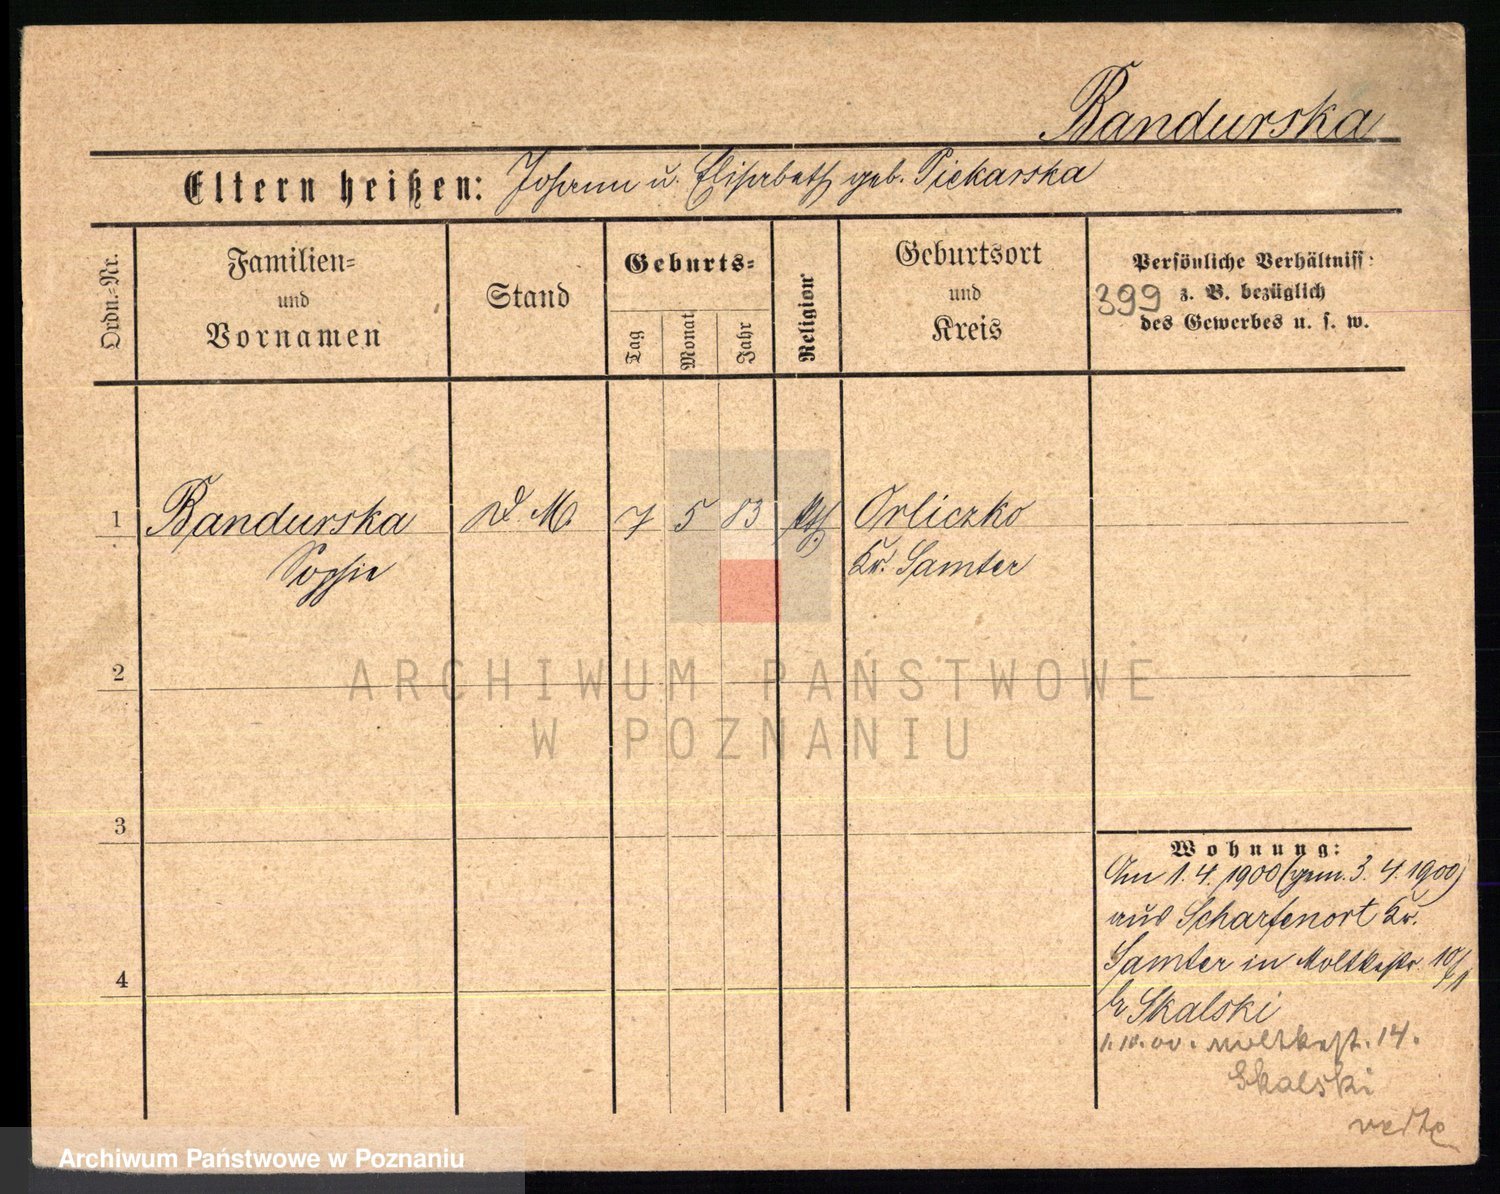 Bandurska
Eltern heißen: Johann u. Elisabeth geb. Piekarska
Ordn.-Nr.
Familien-
und
Vornamen
Stand
Geburts-
Tag
Monat
Jahr
Religion
Geburtsort
und
Kreis
Persönliche Verhältniss:
399 z. B. bezüglich
des Gewerbes u. s. w.
1 Bandurska D. M. 7 5 83 kth Orliczko
Sophie Kr. Samter
2
ARCHIWUM PAŃSTWOWE
W POZNANIU
3
Wohnung:
Am 1. 4. 1900 (gem. 3. 4. 1900)
aus Scharfenort Kr.
4 Samter in Moltkestr. 10
br Skalski
1.10.00. Moltkest. 14.
Skalski
Archiwum Państwowe w Poznaniu